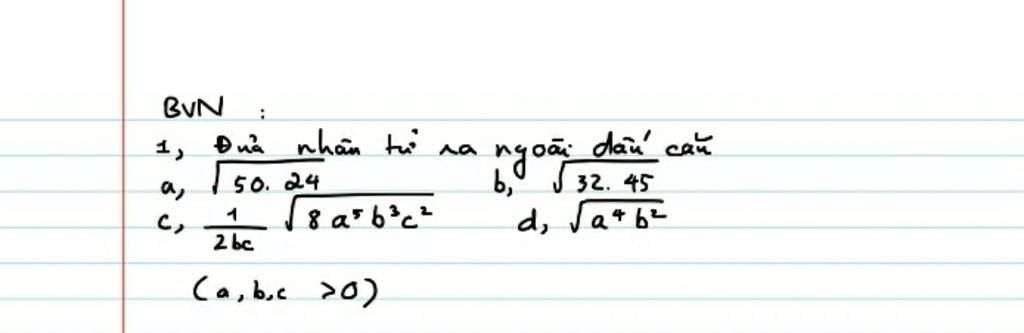 BVN :
1, Đưa nhân tử ra ngoài dấu căn
a, √50. 24 b, √32. 45
c, 1/2bc √8 a⁵ b³c² d, √a⁴ b²
(a, b,c >0)